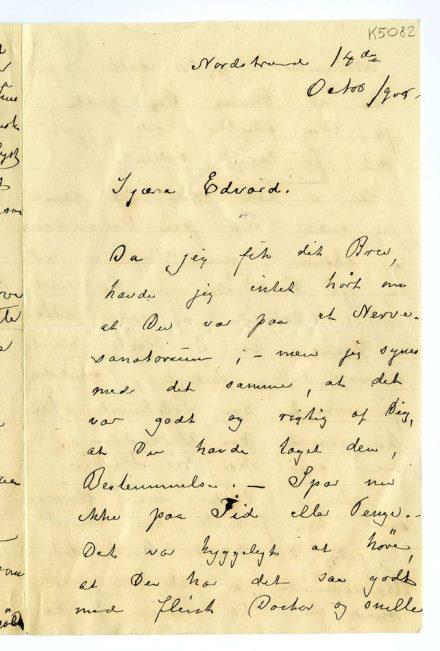 K5082
Nordstrand 14de
Octob 1905.
Kjære Edvard.
Da jeg fik dit Brev,
havde jeg intet hørt om
at Du var paa et Nerve-
sanatorium; – men jeg synes
med det samme, at det
var godt og rigtig af Dig,
at Du havde taget den
Bestemmelse. – Spar nu
ikke paa Tid eller Penge. –
Det var hyggeligt at höre,
at Du har det saa godt
med flink Doctor og snille